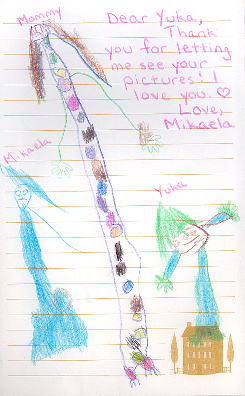 Mommy
Dear Yuka,
Thank
you for letting
me see your
pictures! I
love you. ♡
Love,
Mikaela
Mikaela
Yuka